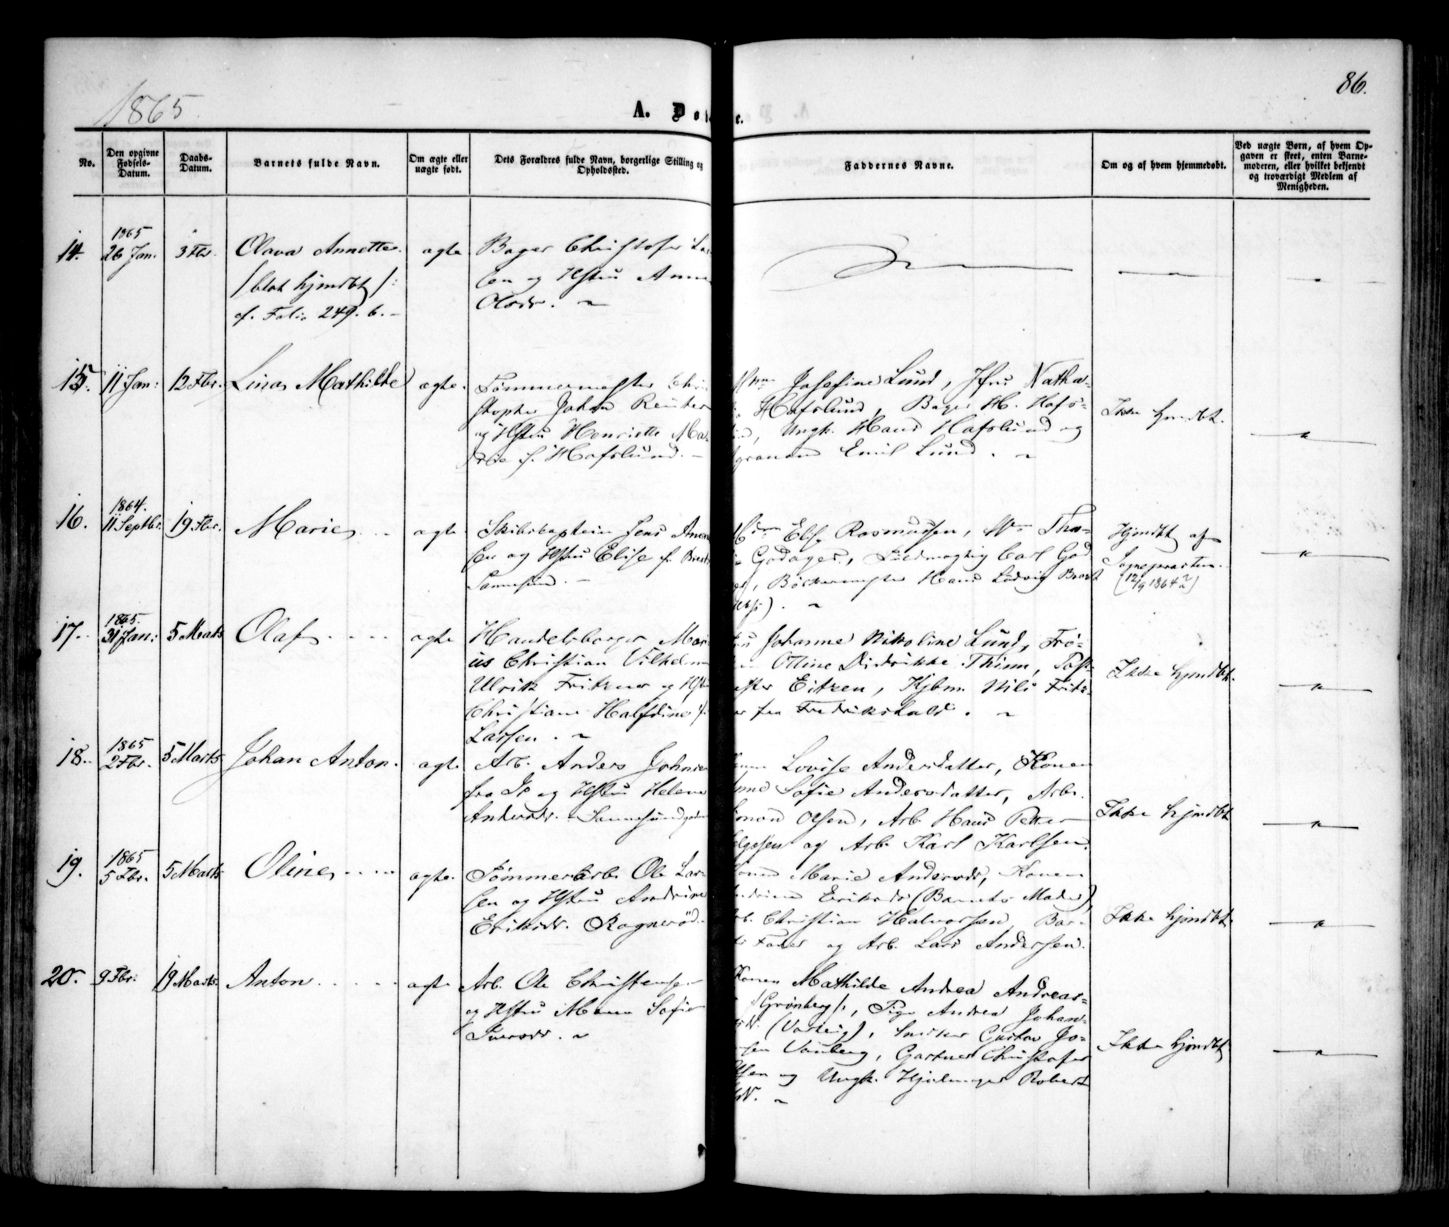 1865.
86.
A. Dø
e.
No.
Den opgivne Fødsels-Datum.
Daabs-Datum.
Barnets fulde Navn.
Om ægte eller uægte født.
Dets Forældres fulde Navn, borgerlige Stilling og Opholdssted.
Faddernes Navne.
Om og af hvem hjemmedøbt.
Ved uægte Børn, af hvem Opgaven er skeet, enten Barnemoderen, eller hvilket bekjendt og troværdigt Medlem af Menigheden.
14.
1865
26 Jan.
3 Fbr.
Olava Annette
/blot hjmdbt/:
cf. Folio 249. b.
ægte
Bager Christofer La
sen og Hstru Anne
Olsdr.
15.
11 Jan:
12 Fbr.
Lina Mathilde
ægte.
Tømmermester Chri
stopher Johan Reuter
og Hstru Henriette Ma
f. Hafslund.
Josefine Lund, Jfru Natha-
Hafslund, Bager H. Hafs-
Ungk. Hans Hafslund og
Emil Lund.
Ikke hjmdbt.
16.
1864.
11 Septbr.
19 Fbr.
Marie
ægte
Skibskaptein Jens
sen og Hstru Elise f.
Sannesund.
Else Rasmussen, Tha-
Godager, Fuldmægtig Carl God
Bøckermester Hans Ludvig
Hjmdbt af
Sognepræsten.
(12/9 1864?)
17.
1865.
31 Jan:
5 Marts
Olaf
ægte
Handelsborger Mari
us Christian Vilhelm
Ulrik Fritzner og Hst
Christiane Halfdine f.
Larsen.
Johanne Nikoline Lund, Frø-
Ottine Didrikke Thinn, Post
ester Eitzen, Kjbm. Nils Fritz
er fra Fredrikshald.
Ikke hjmdbt.
18.
1865
2 Fbr.
5 Marts
Johan Anton.
ægte
Arb. Anders Johnsen
fra og Hstru Helene
Andersdr. Sannesund
Lovise Andersdatter, Konen
Sofie Andersdatter, Arb.
Simon Olsen, Arb. Hans Petter
Helgesen og Arb. Karl Karlsen.
Ikke hjmdbt
19.
1865
5 Fbr.
5 Marts
Oline
ægte.
Tømmerarb. Ole Lar
sen og Hstru Andrine
Eriksdr. Rognerød
Konen Marie Andersdr, Konen
Andrine Eriksdr (Barnets Moder),
Arb. Christian Halvorsen, Bar-
Fader og Arb. Lars Andersen.
Ikke hjmdbt.
20.
9 Fbr:
19 Marts.
Anton
ægt.
Arb. Ole Christensen
og Hstru Maren Sofie
Iversdr.
Konen Mathilde Andrea Andreas-
(Grønberg), Pige Andrea Johan-
(Varteig), Snedker Gustav Jo-
sen Vanberg, Gartner Christofer
Olsen og Ungk. Robert
Ikke hjmdbt